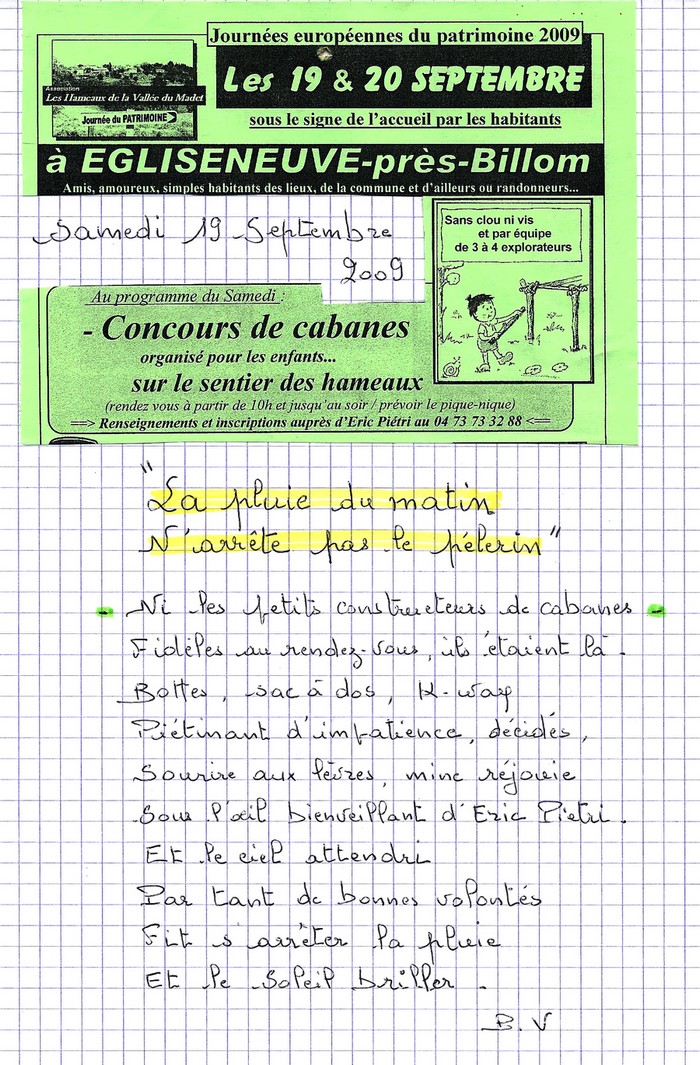 Journées européennes du patrimoine 2009
Les 19 & 20 SEPTEMBRE
Association
Les Hameaux de la Vallée du Madet
Journée du PATRIMOINE
sous le signe de l'accueil par les habitants
à EGLISENEUVE-près-Billom
Amis, amoureux, simples habitants des lieux, de la commune et d'ailleurs ou randonneurs...
Samedi 19 Septembre
2009
Sans clou ni vis
et par équipe
de 3 à 4 explorateurs
Au programme du Samedi :
- Concours de cabanes
organisé pour les enfants...
sur le sentier des hameaux
(rendez vous à partir de 10h et jusqu'au soir / prévoir le pique-nique)
==> Renseignements et inscriptions auprès d'Eric Piétri au 04 73 73 32 88 <==
"La pluie du matin
N'arrête pas le pélerin"
- Ni les petits constructeurs de cabanes -
Fidèles au rendez-vous, ils étaient là.
Bottes, sac à dos, K-way
Piétinant d'impatience, décidés,
Sourire aux lèvres, mine réjouie
Sous l'œil bienveillant d'Eric Pietri.
Et le ciel attendri
Par tant de bonnes volontés
Fit s'arrêter la pluie
Et le soleil briller.
B. V